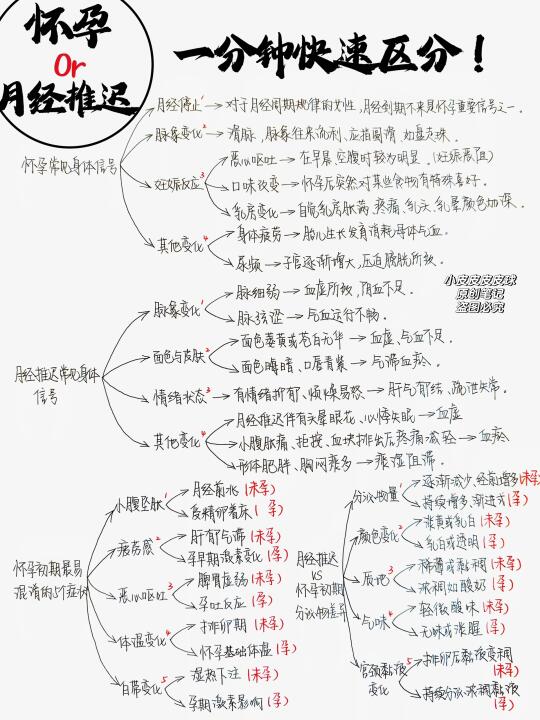 怀孕
Or
月经推迟
一分钟快速区分！
怀孕常见身体信号
月经停止1→对于月经周期规律的女性,月经到期不来是怀孕重要信号之一。
脉象变化2→滑脉,脉象往来流利、应指圆滑、如盘走珠。
妊娠反应3
恶心呕吐→在早晨、空腹时较为明显。(妊娠恶阻)
口味改变→怀孕后突然对某些食物有特殊喜好。
乳房变化→自觉乳房胀满、疼痛、乳头、乳晕颜色加深。
其他变化4
身体疲劳→胎儿生长发育消耗母体气血。
尿频→子宫逐渐增大,压迫膀胱所致。
小皮皮皮皮球
原创笔记
盗图必究
月经推迟常见身体
信号
脉象变化1
脉细弱→血虚所致,阴血不足。
脉弦涩→气血运行不畅。
面色与皮肤2
面色萎黄或苍白无华→血虚、气血不足。
面色晦暗、口唇青紫→气滞血瘀。
情绪状态3→有情绪抑郁、烦躁易怒→肝气郁结、疏泄失常。
其他变化4
月经推迟伴有头晕眼花、心悸失眠→血虚
小腹胀痛、拒按、血块排出后疼痛减轻→血瘀
形体肥胖、胸闷痰多→痰湿阻滞。
怀孕初期最易
混淆的5个症状
小腹坠胀1
月经前兆(未孕)
受精卵着床(孕)
疲劳感2
肝郁气滞(未孕)
孕早期激素变化(孕)
恶心呕吐3
脾胃虚弱(未孕)
孕吐反应(孕)
体温变化4
排卵期(未孕)
怀孕基础体温(孕)
白带变化5
湿热下注(未孕)
孕期激素影响(孕)
月经推迟
VS
怀孕初期
分泌物差异
分泌物量1
逐渐减少、经前增多(未孕)
持续增多、渐进式(孕)
颜色变化2
淡黄或乳白(未孕)
乳白或透明(孕)
质地3
稀薄或黏稠(未孕)
浓稠如酸奶(孕)
气味4
轻微酸味(未孕)
无味或淡腥(孕)
宫颈黏液
变化5
排卵后黏液变稠
(未孕)
持续分泌浓稠黏液
(孕)